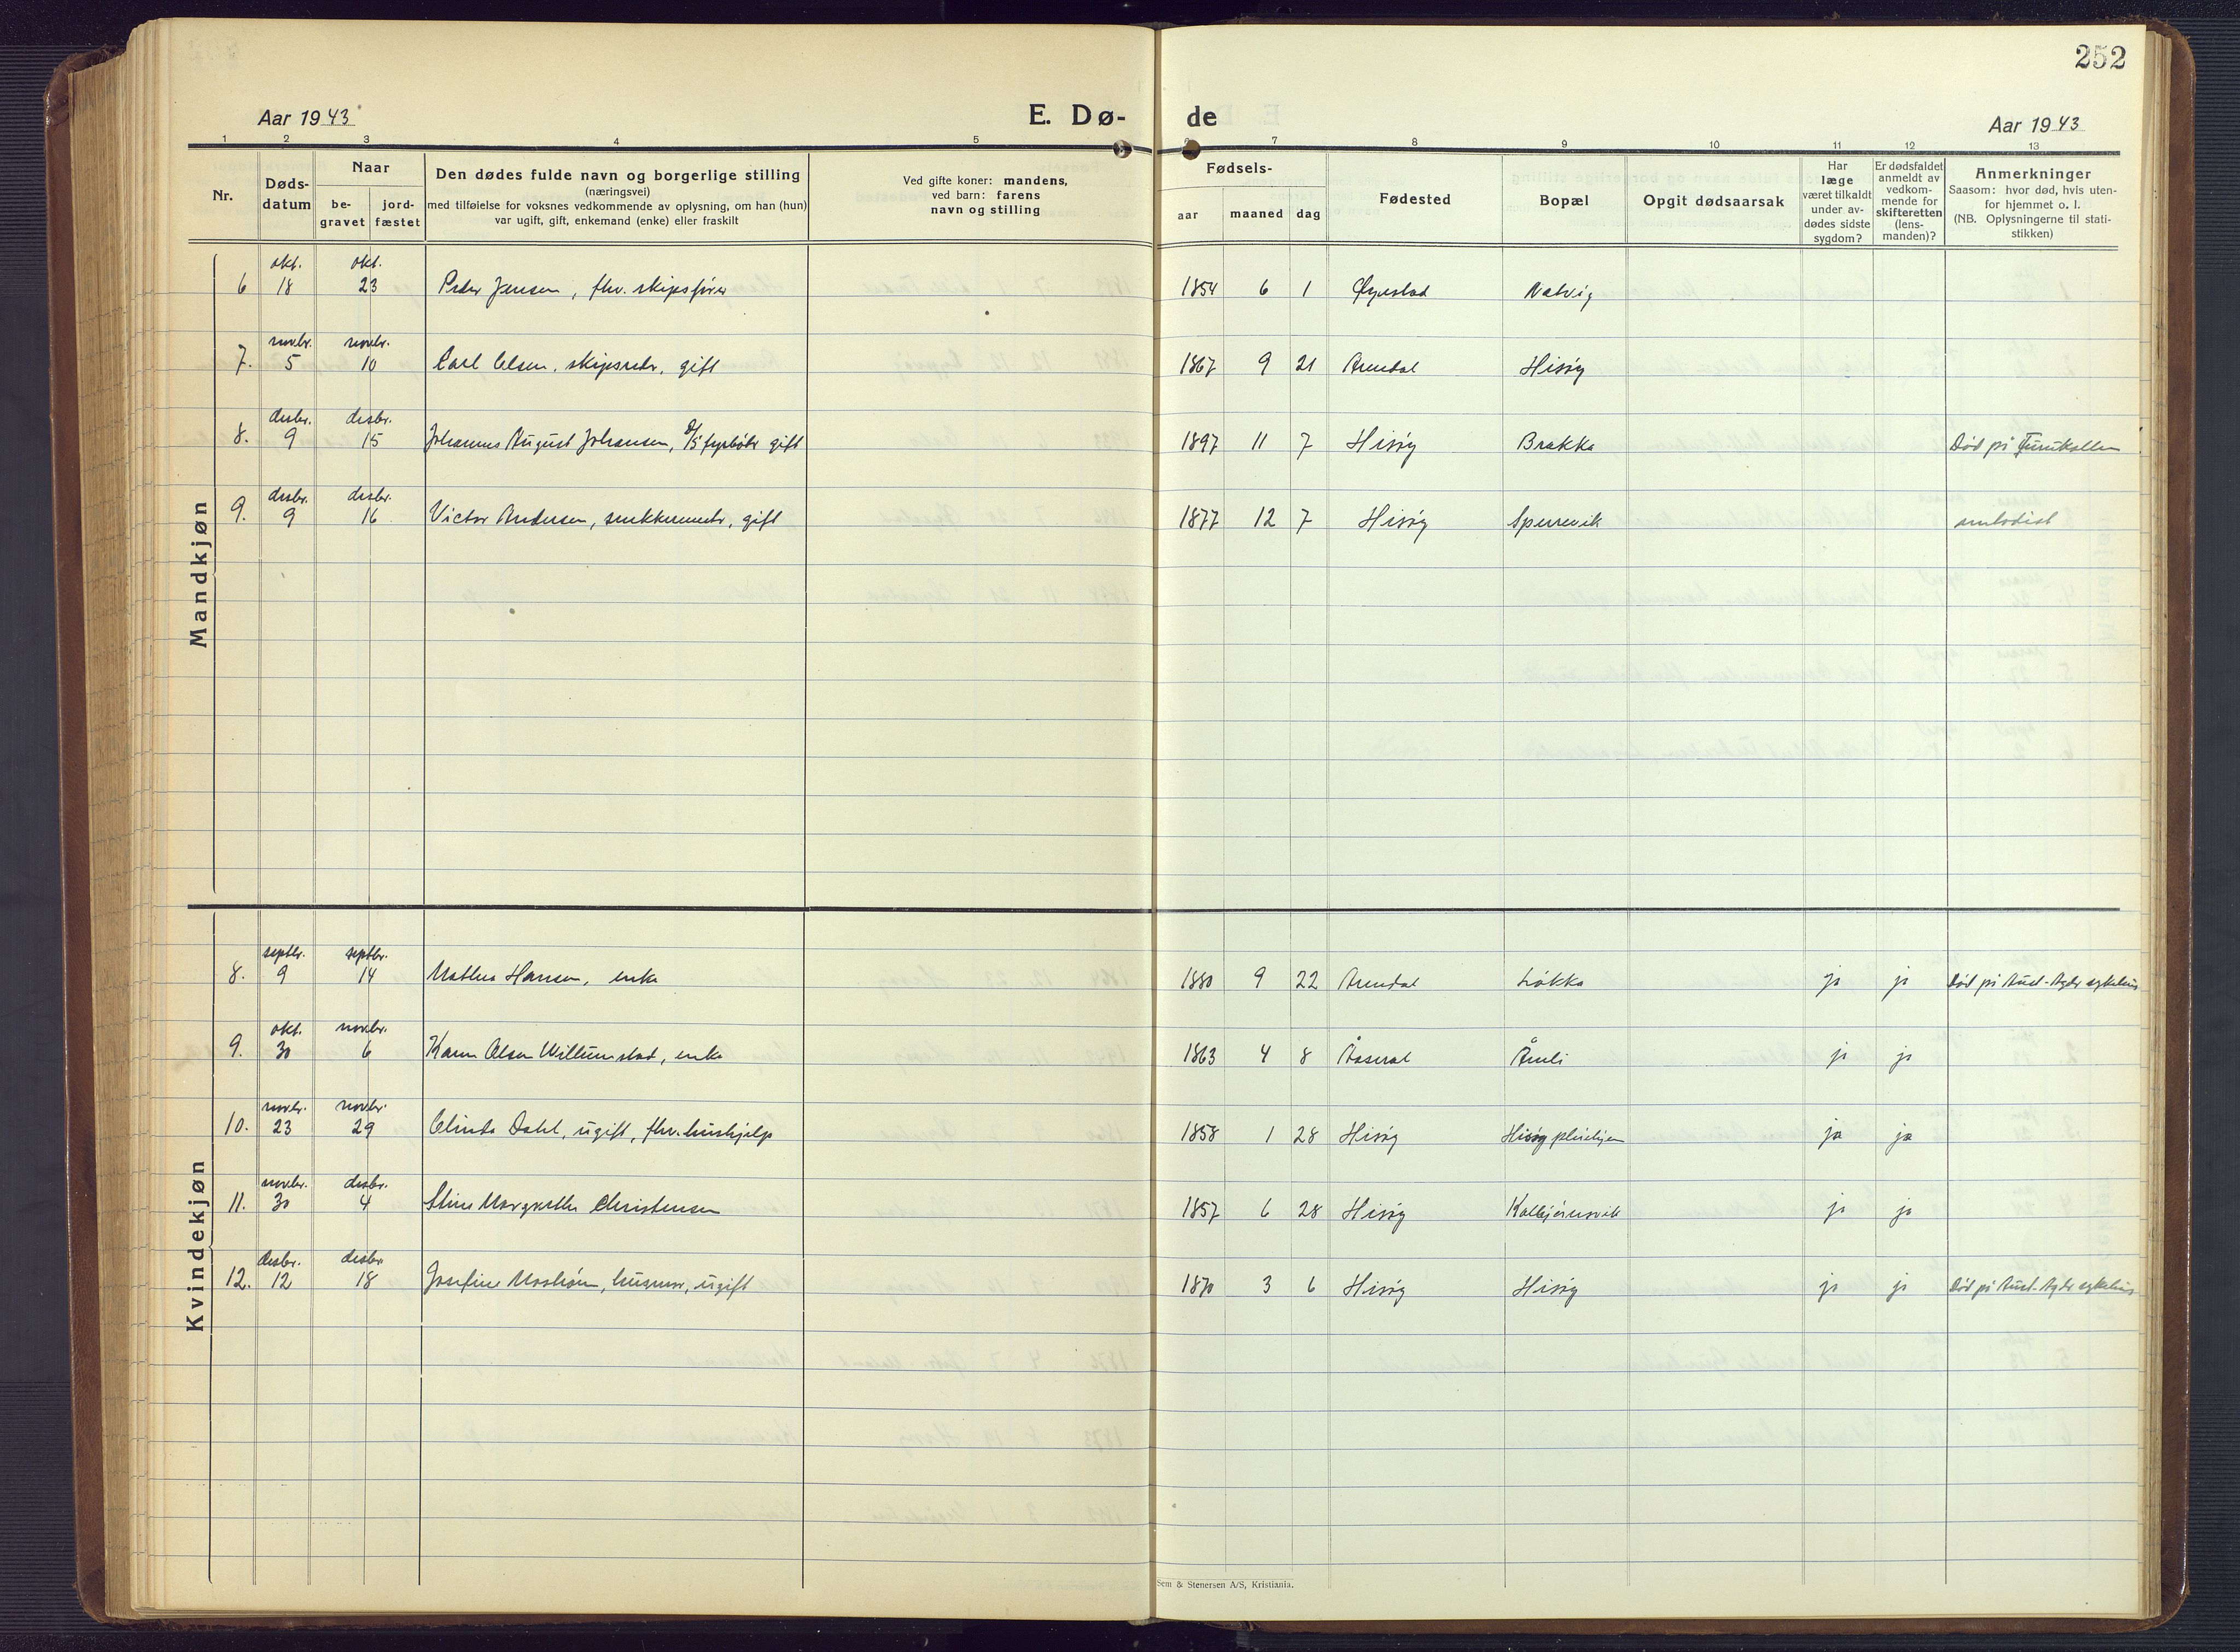 252
Aar 1943
E. Dø-
de
Aar 1943
1 2 3 4 5 6 7 8 9 10 11 12 13
Nr.
Døds-
datum
Naar
be-
gravet
jord-
fæstet
Den dødes fulde navn og borgerlige stilling
(næringsvei)
med tilføielse for voksnes vedkommende av oplysning, om han (hun)
var ugift, gift, enkemand (enke) eller fraskilt
Ved gifte koner: mandens,
ved barn: farens
navn og stilling
Fødsels-
aar maaned dag
Fødested
Bopæl
Opgit dødsaarsak
Har
læge
været tilkaldt
under av-
dødes sidste
sygdom?
Er dødsfaldet
anmeldt av
vedkom-
mende for
skifteretten
(lens-
manden)?
Anmerkninger
Saasom: hvor død, hvis uten-
for hjemmet o. l.
(NB. Oplysningerne til stati-
stikken)
Mandkjøn
okt. okt.
6 18 23 Peder Jensen, fhv. skipsfører 1854 6 1 Øyestad Natvig
novbr. novbr.
7. 5 10 Carl Olsen, skipsreder, gift 1867 9 21 Arendal Hisøy
desbr. desbr.
8. 9 15 Johannes August Johansen, D/S fyrbøter gift 1897 11 7 Hisøy Brekka Død på
desbr. desbr.
9. 9 16 Victor Andersen, snekkermester, gift 1877 12 7 Hisøy Sperrevik metodist
Kvindekjøn
septbr. septbr.
8. 9 14 Mathea Hansen, enke 1880 9 22 Arendal Løkka ja ja Død på Aust-Agder sykehus
okt. novbr.
9. 30 6 Karen Olsen Willumstad, enke 1863 4 8 Åseral Åmli ja ja
novbr. novbr.
10. 23 29 Olinda Dahl, ugift, fhv. hushjelp 1858 1 28 Hisøy Hisøy pleiehjem ja ja
novbr. desbr.
11. 30 4 Stine Margrethe Christensen 1857 6 28 Hisøy Kolbjørnsvik ja ja
desbr. desbr.
12. 12 18 Josefine ugift 1870 3 6 Hisøy Hisøy ja ja Død på Aust-Agder sykehus
Sem & Stenersen A/S, Kristiania.